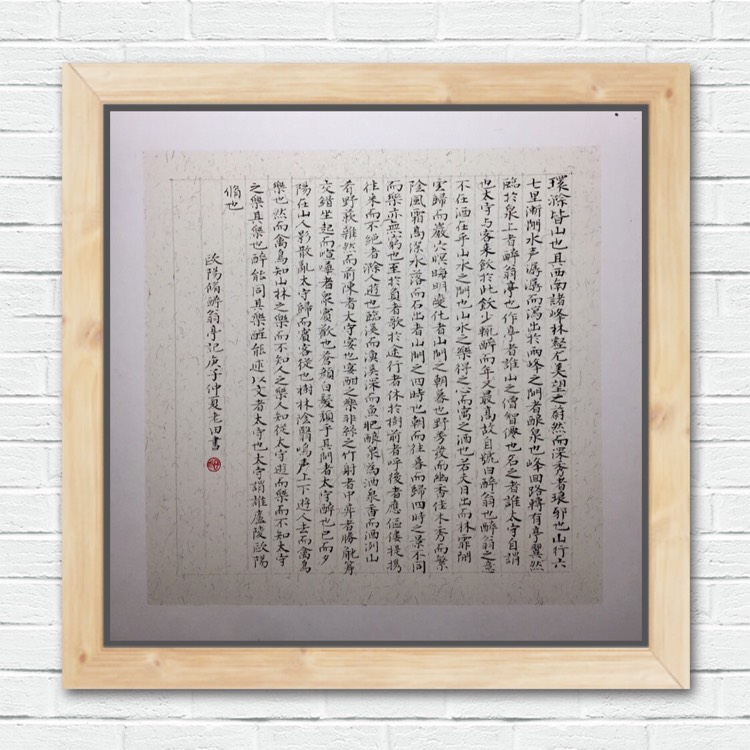 環滁皆山也其西南諸峰林壑尤美望之蔚然而深秀者琅邪也山行六
七里漸聞水声潺潺而瀉出於兩峰之間者釀泉也峰回路轉有亭翼然
臨於泉上者醉翁亭也作亭者誰山之僧智僊也名之者誰太守自謂
也太守与客来飲於此飲少輒醉而年又最高故自號曰醉翁也醉翁之意
不在酒在乎山水之間也山水之樂得之心而寓之酒也若夫日出而林霏開
雲歸而巖穴暝晦明變化者山間之朝暮也野芳發而幽香佳木秀而繁
陰風霜高潔水落而石出者山間之四時也朝而往暮而歸四時之景不同
而樂亦無窮也至於負者歌於途行者休於樹前者呼後者應傴僂提携
往来而不絶者滁人遊也臨溪而漁溪深而魚肥釀泉為酒泉香而酒洌山
肴野蔌雜然而前陳者太守宴也宴酣之樂非絲之竹射者中弈者勝觥籌
交錯坐起而喧嘩者衆賓歡也蒼顏白髮頹乎其間者太守醉也已而夕
陽在山人影散亂太守歸而賓客從也樹林陰翳鳴声上下遊人去而禽鳥
樂也然而禽鳥知山林之樂而不知人之樂人知從太守遊而樂而不知太守
之樂其樂也醉能同其樂醒能述以文者太守也太守謂誰廬陵歐陽
脩也
歐陽脩醉翁亭記庚子仲夏老田書